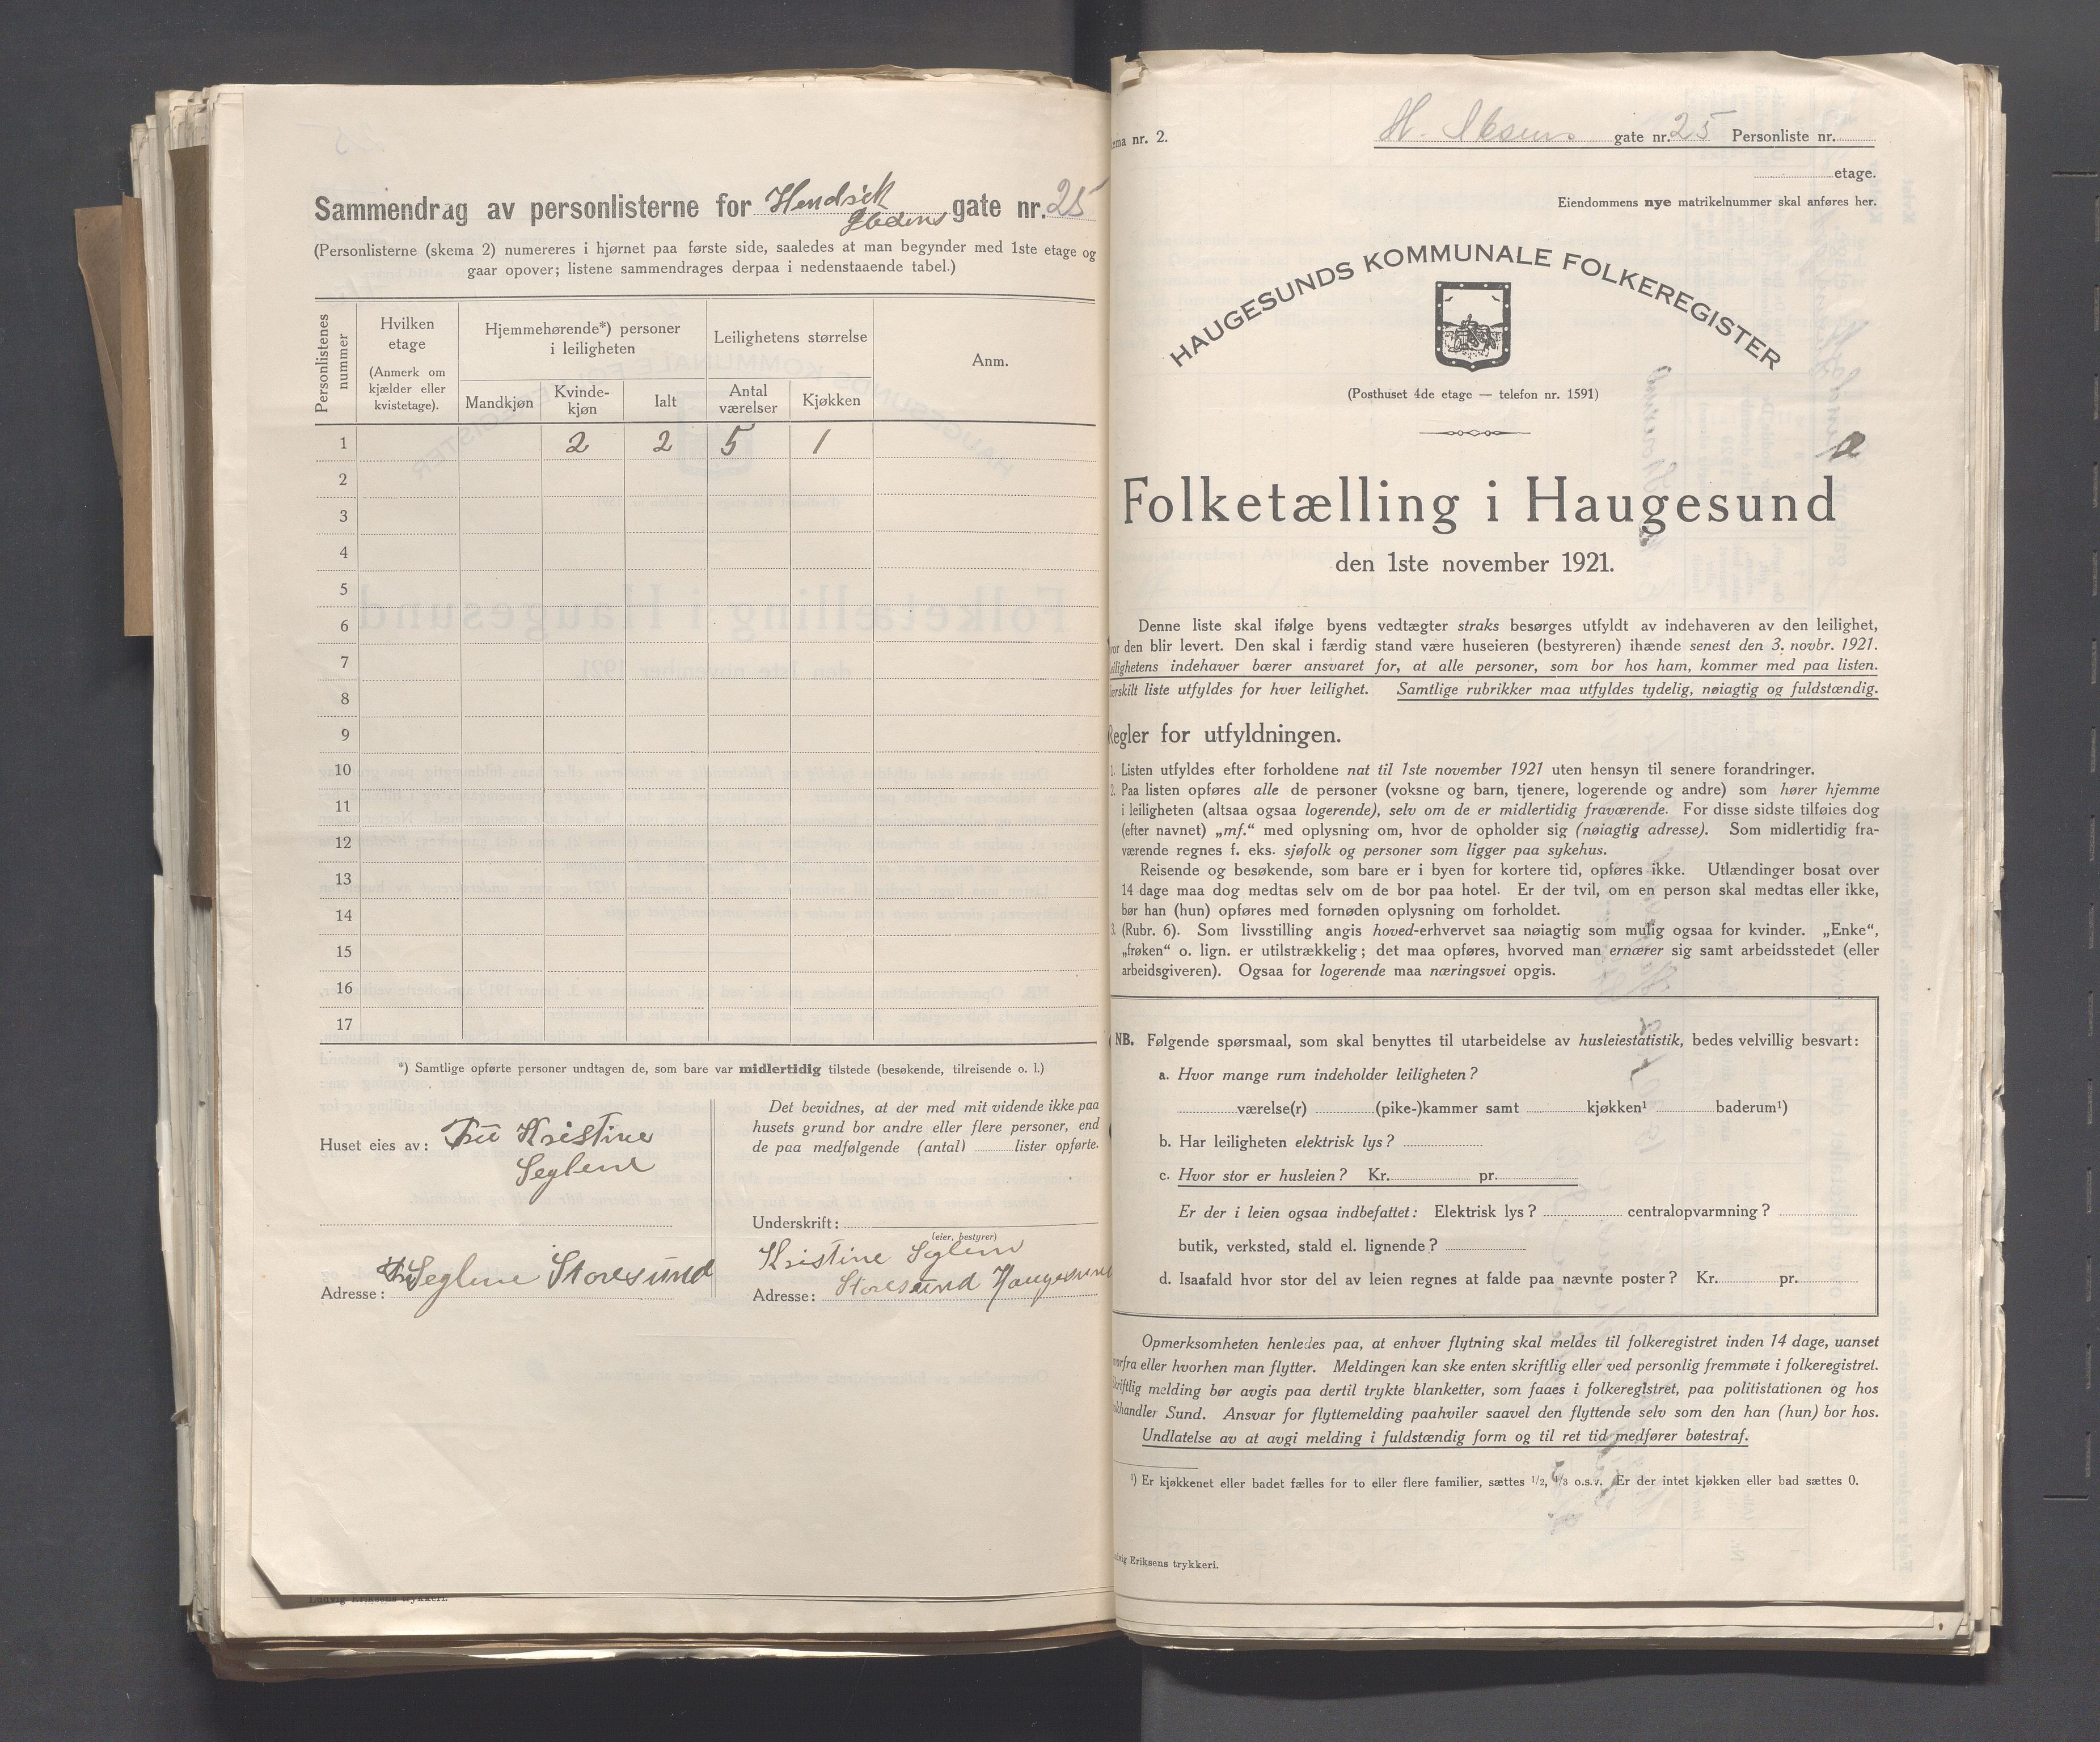 Sammendrag av personlisterne for Hendrik
gate nr. 25
(Personlisterne (skema 2) numereres i hjørnet paa første side, saaledes at man begynder med 1ste etage og
gaar opover; listene sammendrages derpaa i nedenstaaende tabel.)
Personlistenes nummer
Hvilken etage
(Anmerk om kjælder eller kvistetage).
Hjemmehørende*) personer i leiligheten
Mandkjøn
Kvinde-kjøn
Ialt
Leilighetens størrelse
Antal værelser
Kjøkken
Anm.
1 2 2 5 1
2
3
4
5
6
7
8
9
10
11
12
13
14
15
16
17
*) Samtlige opførte personer undtagen de, som bare var midlertidig tilstede (besøkende, tilreisende o. l.)
Huset eies av: Fru Kristine
Seglem
Adresse: Seglem Storesund
Det bevidnes, at der med mit vidende ikke paa
husets grund bor andre eller flere personer, end
de paa medfølgende (antal) lister opførte.
Underskrift:
(eier, bestyrer)
Kristine Seglem
Adresse: Storesund Haugesund
Ludvig Eriksens trykkeri.
nr. 2.
H. gate nr. 25 Personliste nr.
etage.
Eiendommens nye matrikelnummer skal anføres her.
HAUGESUNDS KOMMUNALE FOLKEREGISTER
(Posthuset 4de etage — telefon nr. 1591)
Folketælling i Haugesund
den 1ste november 1921.
Denne liste skal ifølge byens vedtægter straks besørges utfyldt av indehaveren av den leilighet,
den blir levert. Den skal i færdig stand være huseieren (bestyreren) ihænde senest den 3. novbr. 1921.
Leilighetens indehaver bærer ansvaret for, at alle personer, som bor hos ham, kommer med paa listen.
Særskilt liste utfyldes for hver leilighet. Samtlige rubrikker maa utfyldes tydelig, nøiagtig og fuldstændig.
Regler for utfyldningen.
1. Listen utfyldes efter forholdene nat til 1ste november 1921 uten hensyn til senere forandringer.
2. Paa listen opføres alle de personer (voksne og barn, tjenere, logerende og andre) som hører hjemme
i leiligheten (altsaa ogsaa logerende), selv om de er midlertidig fraværende. For disse sidste tilføies dog
(efter navnet) „mf.“ med oplysning om, hvor de opholder sig (nøiagtig adresse). Som midlertidig fra-
værende regnes f. eks. sjøfolk og personer som ligger paa sykehus.
Reisende og besøkende, som bare er i byen for kortere tid, opføres ikke. Utlændinger bosat over
14 dage maa dog medtas selv om de bor paa hotel. Er der tvil, om en person skal medtas eller ikke,
bør han (hun) opføres med fornøden oplysning om forholdet.
3. (Rubr. 6). Som livsstilling angis hoved-erhvervet saa nøiagtig som mulig ogsaa for kvinder. „Enke“,
„frøken“ o. lign. er utilstrækkelig; det maa opføres, hvorved man ernærer sig samt arbeidsstedet (eller
arbeidsgiveren). Ogsaa for logerende maa næringsvei opgis.
NB. Følgende spørsmaal, som skal benyttes til utarbeidelse av husleiestatistik, bedes velvillig besvart:
a. Hvor mange rum indeholder leiligheten?
værelse(r) (pike-)kammer samt kjøkken¹ baderum¹)
b. Har leiligheten elektrisk lys?
c. Hvor stor er husleien? Kr. pr.
Er der i leien ogsaa indbefattet: Elektrisk lys? centralopvarmning?
butik, verksted, stald el. lignende?
d. Isaafald hvor stor del av leien regnes at falde paa nævnte poster? Kr. pr.
Opmerksomheten henledes paa, at enhver flytning skal meldes til folkeregistret inden 14 dage, uanset
hvorfra eller hvorhen man flytter. Meldingen kan ske enten skriftlig eller ved personlig fremmøte i folkeregistret.
Skriftlig melding bør avgis paa dertil trykte blanketter, som faaes i folkeregistret, paa politistationen og hos
bokhandler Sund. Ansvar for flyttemelding paahviler saavel den flyttende selv som den han (hun) bor hos.
Undlatelse av at avgi melding i fuldstændig form og til ret tid medfører bøtestraf.
¹) Er kjøkkenet eller badet fælles for to eller flere familier, sættes 1/2, 1/3 o.s.v. Er der intet kjøkken eller bad sættes 0.
Ludvig Eriksens trykkeri.